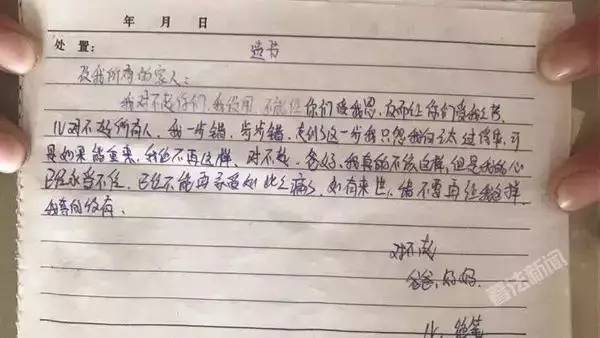 年 月 日
处置： 遗书
及我所有的家人：
我对不起你们，我没用，不能给你们报恩，反而让你们受我之苦。
儿对不起所有人，我一步错，步步错，走到这一步我只怨我自己太过信别，可
是如果能重来，我绝不再这样，对不起，爸妈，我真的不该这样，但是我的心
已经承当不住，已经不能再承受如此之痛了，如有来世，绝不要再经我这样
我真的没有。
对不起
爸爸，妈妈。
儿，绝笔
晋法新闻